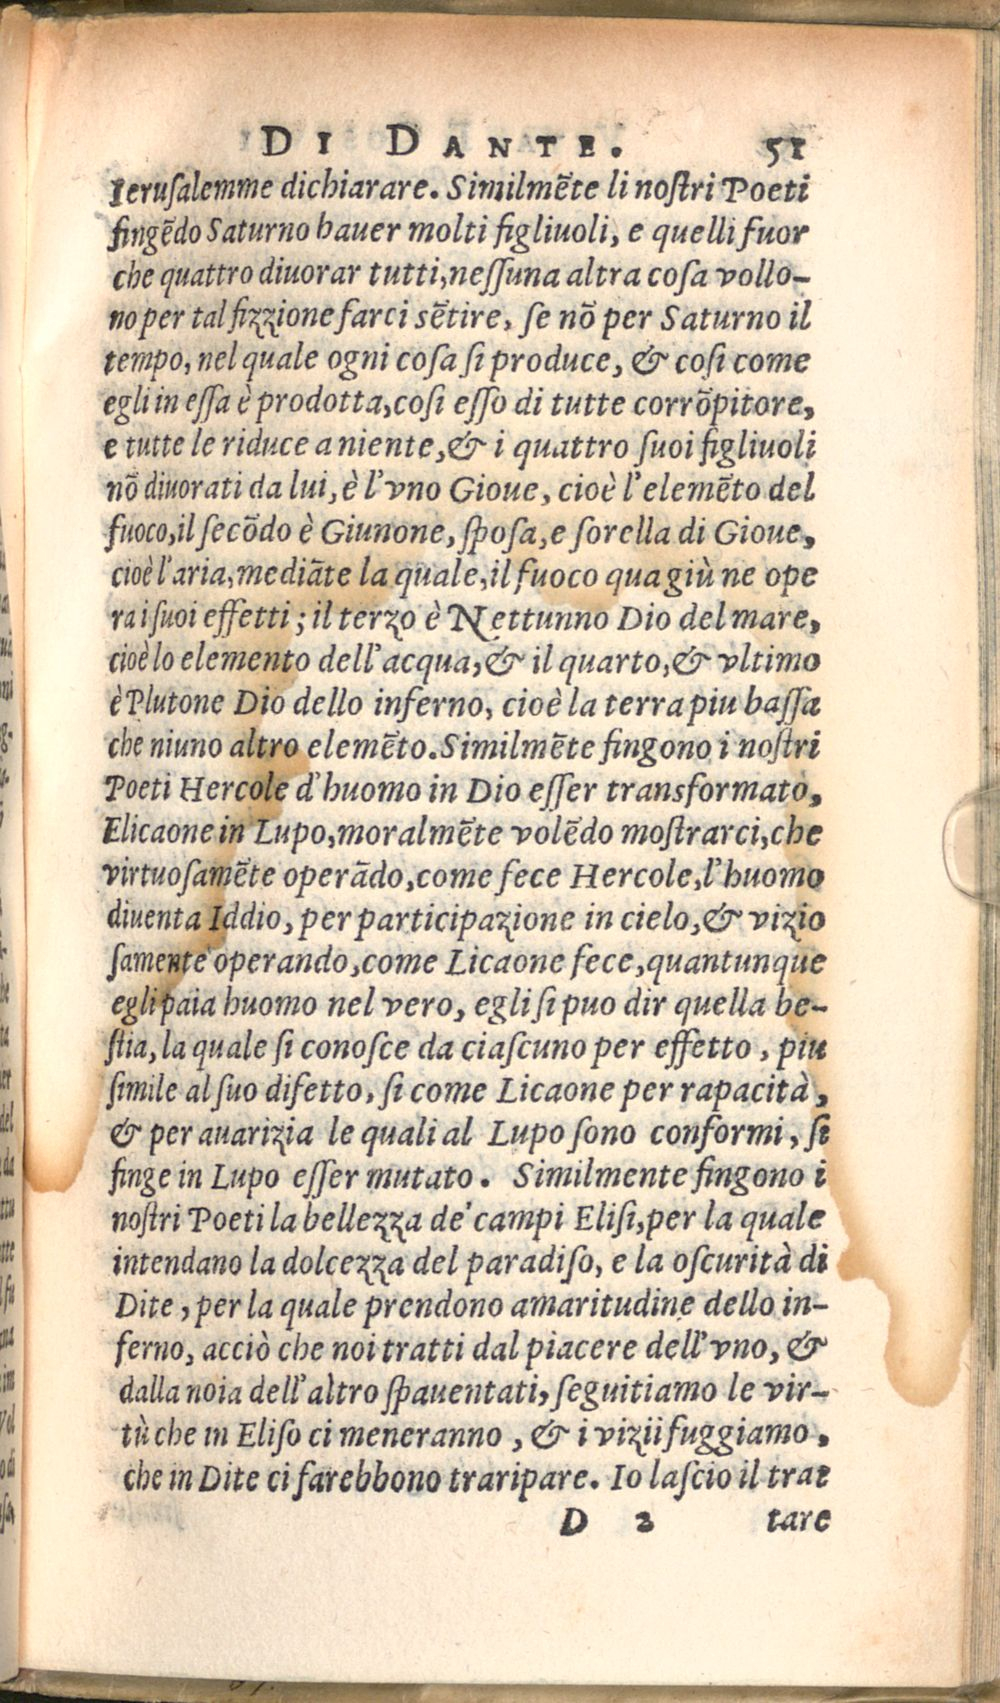 DI DANTE. 51
Ierusalemme dichiarare. Similmẽte li nostri Poeti
fingẽdo Saturno hauer molti figliuoli, e quelli fuor
che quattro diuorar tutti, nessuna altra cosa vollo-
no per tal fizzione farci sẽtire, se nõ per Saturno il
tempo, nel quale ogni cosa si produce, & cosi come
egli in essa è prodotta, cosi esso di tutte corrõpitore,
e tutte le riduce a niente, & i quattro suoi figliuoli
nõ diuorati da lui, è l'vno Gioue, cioè l'elemẽto del
fuoco, il secõdo è Giunone, sposa, e sorella di Gioue,
cioè l'aria, mediãte la quale, il fuoco qua giù ne ope
ra i suoi effetti; il terzo è Nettunno Dio del mare,
cioè lo elemento dell'acqua, & il quarto, & vltimo
è Plutone Dio dello inferno, cioè la terra piu bassa
che niuno altro elemẽto. Similmẽte fingono i nostri
Poeti Hercole d'huomo in Dio esser transformato,
E licaone in Lupo, moralmẽte volẽdo mostrarci, che
virtuosamẽte operãdo, come fece Hercole, l'huomo
diuenta Iddio, per participazione in cielo, & vizio
samente operando, come Licaone fece, quantunque
egli paia huomo nel vero, egli si puo dir quella be-
stia, la quale si conosce da ciascuno per effetto, piu
simile al suo difetto, si come Licaone per rapacità,
& per auarizia le quali al Lupo sono conformi, si
finge in Lupo esser mutato. Similmente fingono i
nostri Poeti la bellezza de' campi Elisi, per la quale
intendano la dolcezza del paradiso, e la oscurità di
Dite, per la quale prendono amaritudine dello in-
ferno, acciò che noi tratti dal piacere dell'vno, &
dalla noia dell'altro spauentati, seguitiamo le vir-
tù che in Eliso ci meneranno, & i vizii fuggiamo,
che in Dite ci farebbono traripare. Io lascio il trat
D 2 tare